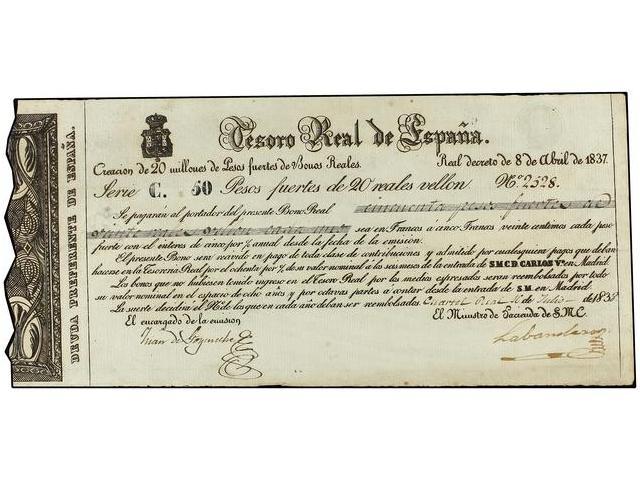 DEUDA PREFERENTE DE ESPAÑA.
Tesoro Real de España.
Creacion de 20 millones de Pesos fuertes de Bonos Reales. Real decreto de 8 de Abril de 1837.
Serie C. 50 Pesos fuertes de 20 reales vellon. N.º 2528.
Se pagarán al portador del presente Bono Real cincuenta pesos fuertes de
veinte reales vellon cada uno sea en Francos a cinco Francos veinte centimos cada peso
fuerte con el interes de cinco por % anual desde la fecha de la emision.
El presente Bono será recivido en pago de toda clase de contribuciones y admitido por cualesquiera pagos que deban
hacerse en la Tesoreria Real por el ochenta por % de su valor nominal a los seis meses de la entrada de S.M.C.D. CARLOS V.º en Madrid.
Los bonos que no hubiesen tenido ingreso en el Tesoro Real por los medios espresados serán reembolsados por todo
su valor nominal en el espacio de ocho años y por octavas partes a contar desde la entrada de S.M. en Madrid.
La suerte decidirá el N.º de los que en cada año deban ser reembolsados. Cuartel Real de Julio de 1838
El encargado de la emision El Ministro de Hacienda de S.M.C.
Juan de Labandero